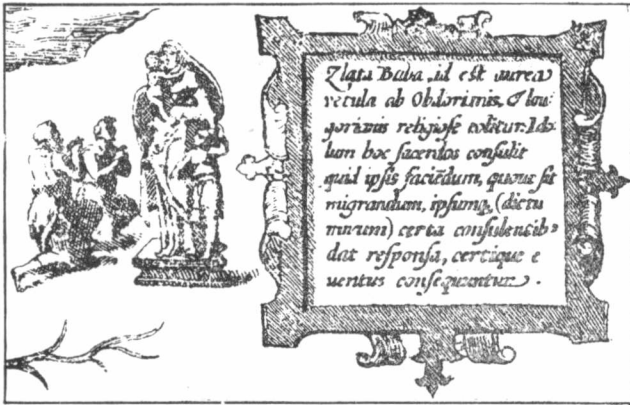 Zlata Baba, id est aurea
vetula ab Obdorianis, & Iou-
gorianis religiose colitur. Ido-
lum hoc sacerdos consulit
quid ipsis faciēdum, quoue sit
migrandum, ipsumq, (dictu
mirum) certa consulentib⁹
dat responsa, certique e
uentus consequuntur.